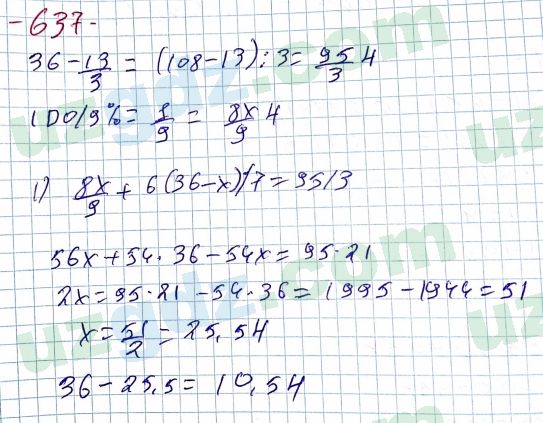 -637-
36 - 13/3 = (108-13):3 = 95/3 ч
100/9% = 1/9 = 8x/9 ч
1) 8x/9 + 6(36-x)/7 = 95/3
56x + 54·36 - 54x = 95·21
2x = 95·21 - 54·36 = 1995 - 1944 = 51
x = 51/2 = 25,5ч
36 - 25,5 = 10,5ч
uzgdz.com
uzgdz.com
uzgdz.com